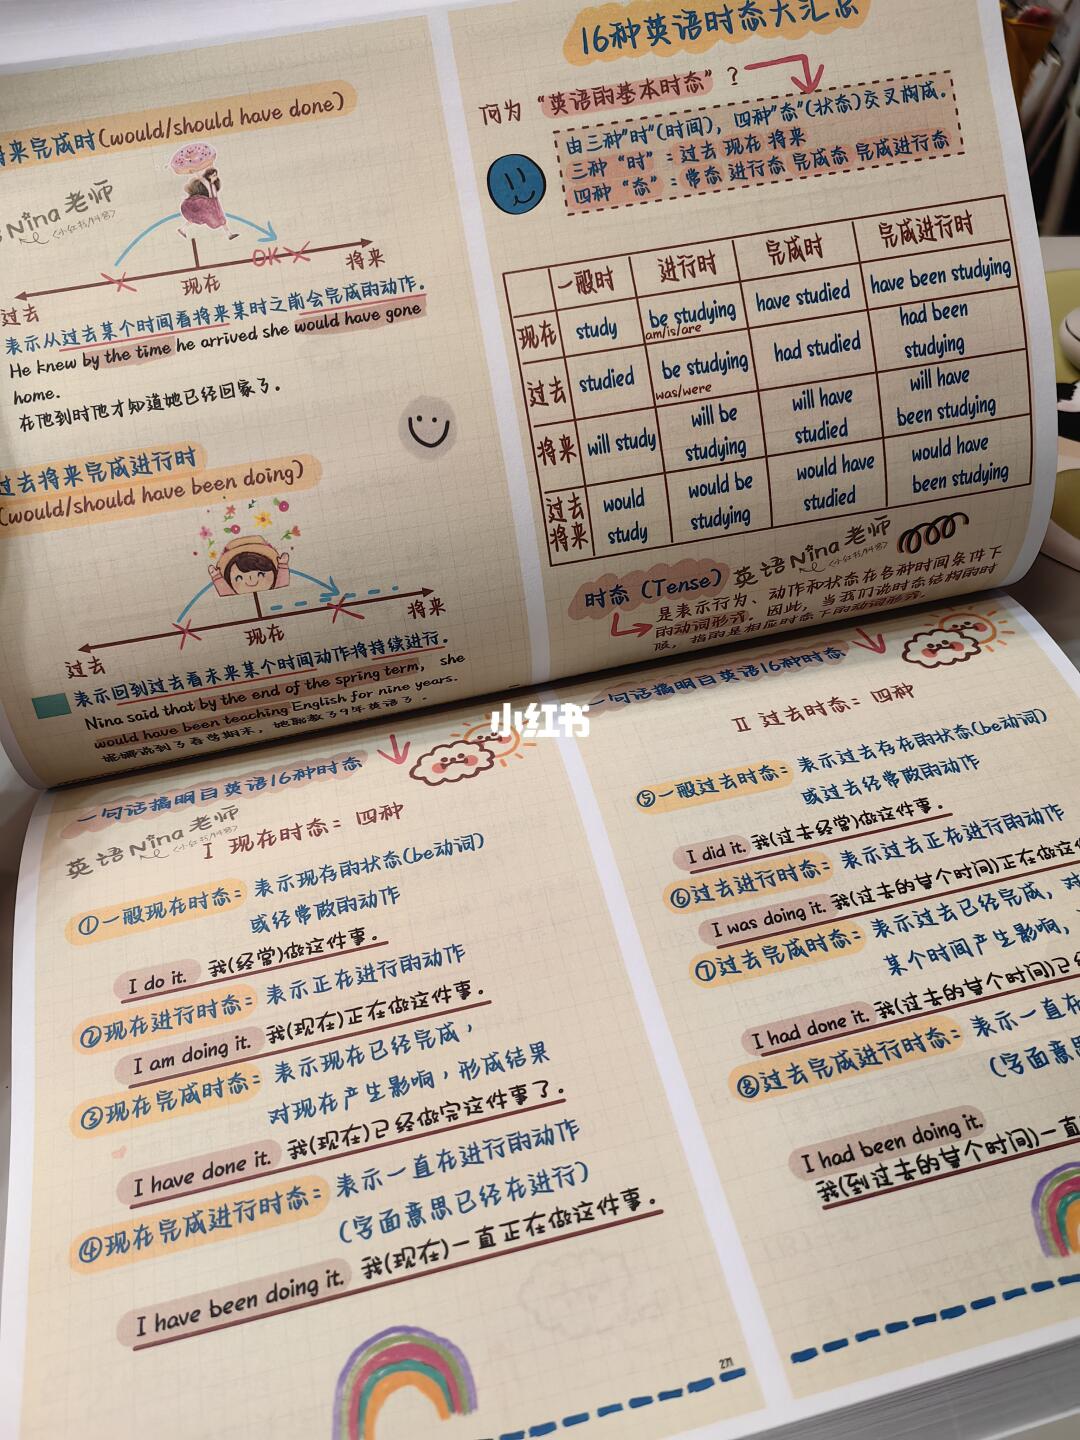 将来完成时(would/should have done)
Nina老师
OK
过去
现在
将来
表示从过去某个时间看将来某时之前会完成的动作.
He knew by the time he arrived she would have gone
home.
在他到时他才知道她已经回家了.
过去将来完成进行时
(would/should have been doing)
过去
现在
将来
表示回到过去看未来某个时间动作将持续进行.
Nina said that by the end of the spring term, she
would have been teaching English for nine years.
16种英语时态大汇总
何为“英语的基本时态”?
由三种“时”(时间),四种“态”(状态)交叉构成.
三种“时”:过去 现在 将来
四种“态”:常态 进行态 完成态 完成进行态
一般时 进行时 完成时 完成进行时
现在 study be studying am/is/are have studied have been studying
过去 studied be studying was/were had studied had been studying
将来 will study will be studying will have studied will have been studying
过去将来 would study would be studying would have studied would have been studying
英语Nina老师
时态(Tense)
是表示行为、动作和状态在各种时间条件下
的动词形式。因此,当我们说时态结构的时
候,指的是相应时态下的动词形式.
小红书
一句话搞明白英语16种时态
英语Nina老师
I 现在时态:四种
①一般现在时态:表示现存的状态(be动词)
或经常做的动作
I do it. 我(经常)做这件事.
②现在进行时态:表示正在进行的动作
I am doing it. 我(现在)正在做这件事.
③现在完成时态:表示现在已经完成,
对现在产生影响,形成结果
I have done it. 我(现在)已经做完这件事了.
④现在完成进行时态:表示一直在进行的动作
(字面意思已经在进行)
I have been doing it. 我(现在)一直正在做这件事.
271
一句话搞明白英语16种时态
II 过去时态:四种
⑤一般过去时态:表示过去存在的状态(be动词)
或过去经常做的动作
I did it. 我(过去经常)做这件事.
⑥过去进行时态:表示过去正在进行的动作
I was doing it. 我(过去的某个时间)正在做这
⑦过去完成时态:表示过去已经完成,对
某个时间产生影响,
I had done it. 我(过去的某个时间)已
⑧过去完成进行时态:表示一直在
(字面意思
I had been doing it.
我(到过去的某个时间)一直